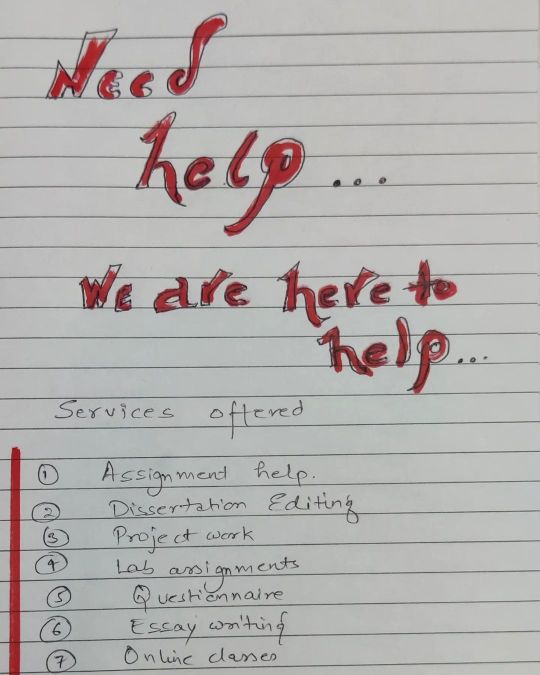 Need
help...
We are here to
help...
Services offered
① Assignment help.
② Dissertation Editing
③ Project work
④ Lab assignments
⑤ Questionnaire
⑥ Essay writing
⑦ Online classes